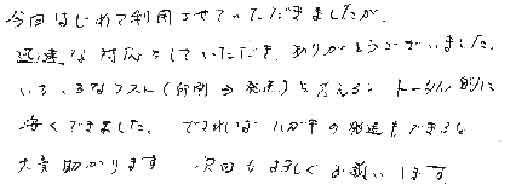 今回はじめて利用させていただきましたが、
迅速な対応をしていただき、ありがとうございました。
いろいろなコスト(印刷⇒発送)を考えると トータル的に
安くできました。 できれば ハガキの発送もできると
大変助かります 次回もよろしくお願いします